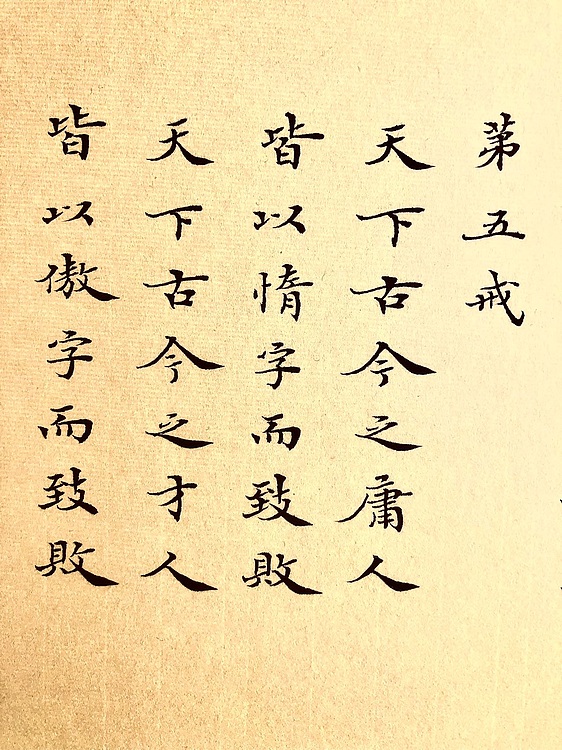 第五戒
天下古今之庸人
皆以惰字而致敗
天下古今之才人
皆以傲字而致敗